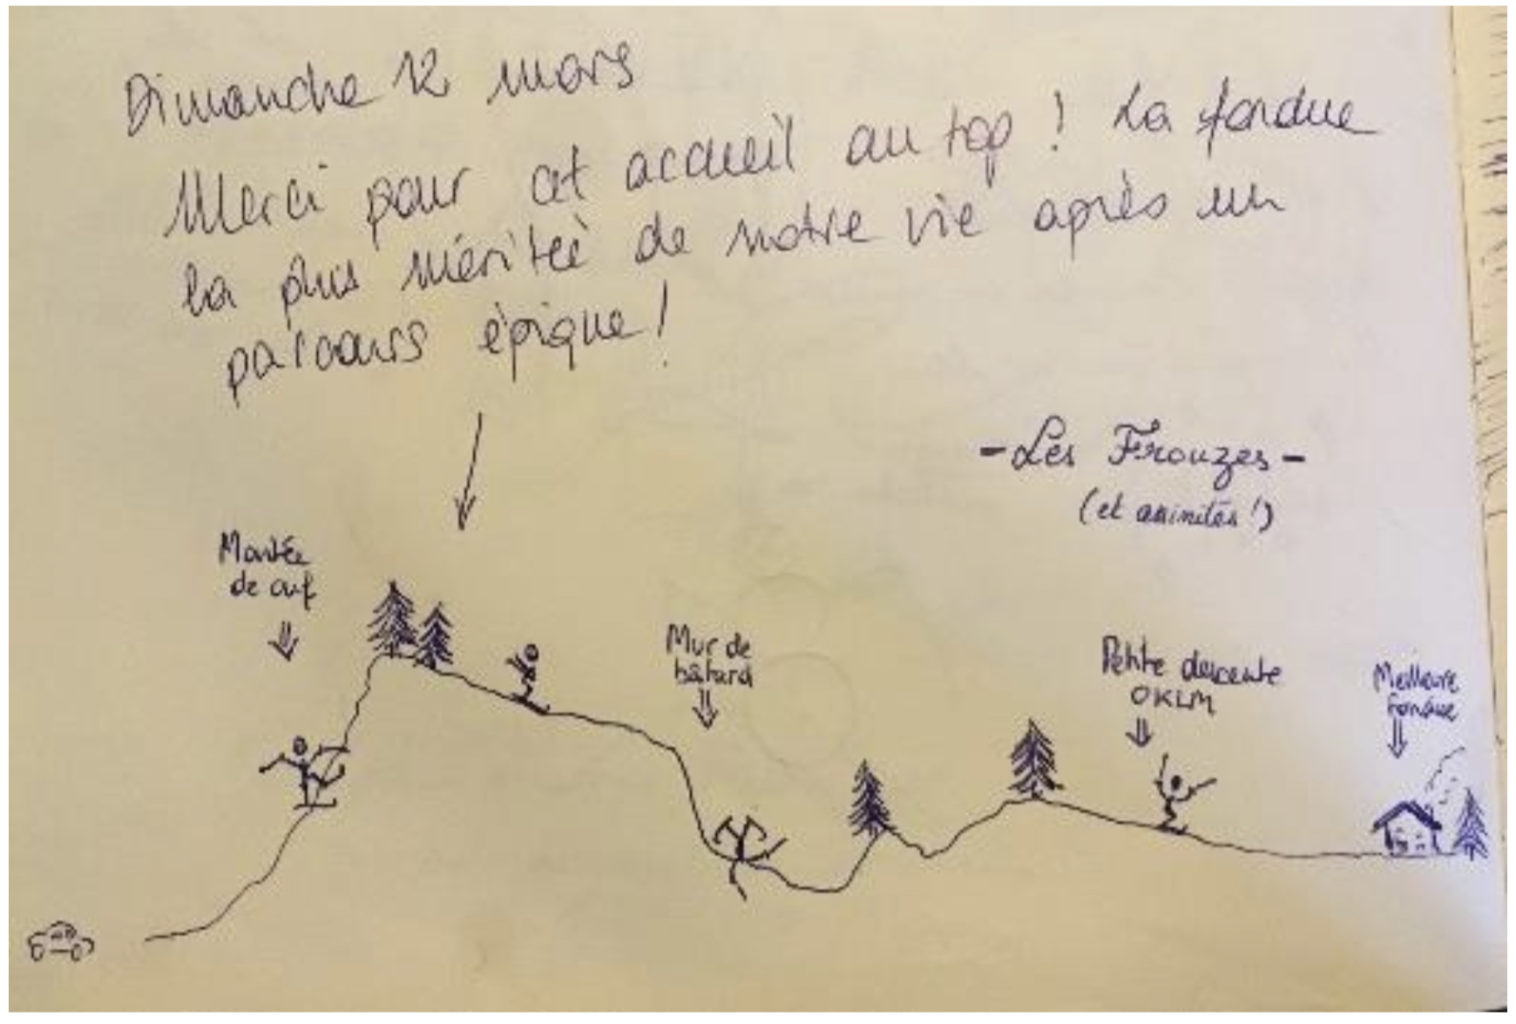 Dimanche 12 mars
Merci pour cet accueil au top ! La fondue
la plus méritée de notre vie après un
parcours épique !
- Les Frouzes -
(et assimilés !)
Montée
de ouf
Mur de
bâtard
Petite descente
OKLM
Meilleure
fondue